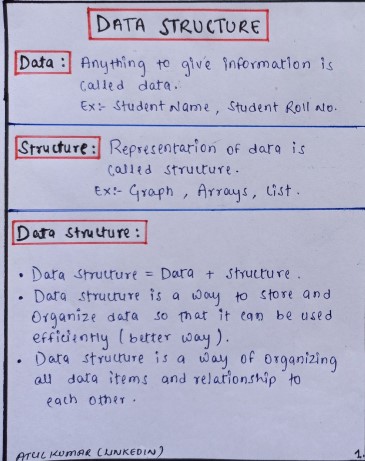 DATA STRUCTURE
Data : Anything to give information is
called data.
Ex:- Student Name, Student Roll No.
Structure : Representation of data is
called structure.
Ex:- Graph, Arrays, List.
Data structure :
• Data structure = Data + structure.
• Data structure is a way to store and
Organize data so that it can be used
efficiently (better way).
• Data structure is a way of organizing
all data items and relationship to
each other.
ATUL KUMAR (LINKEDIN)
1.